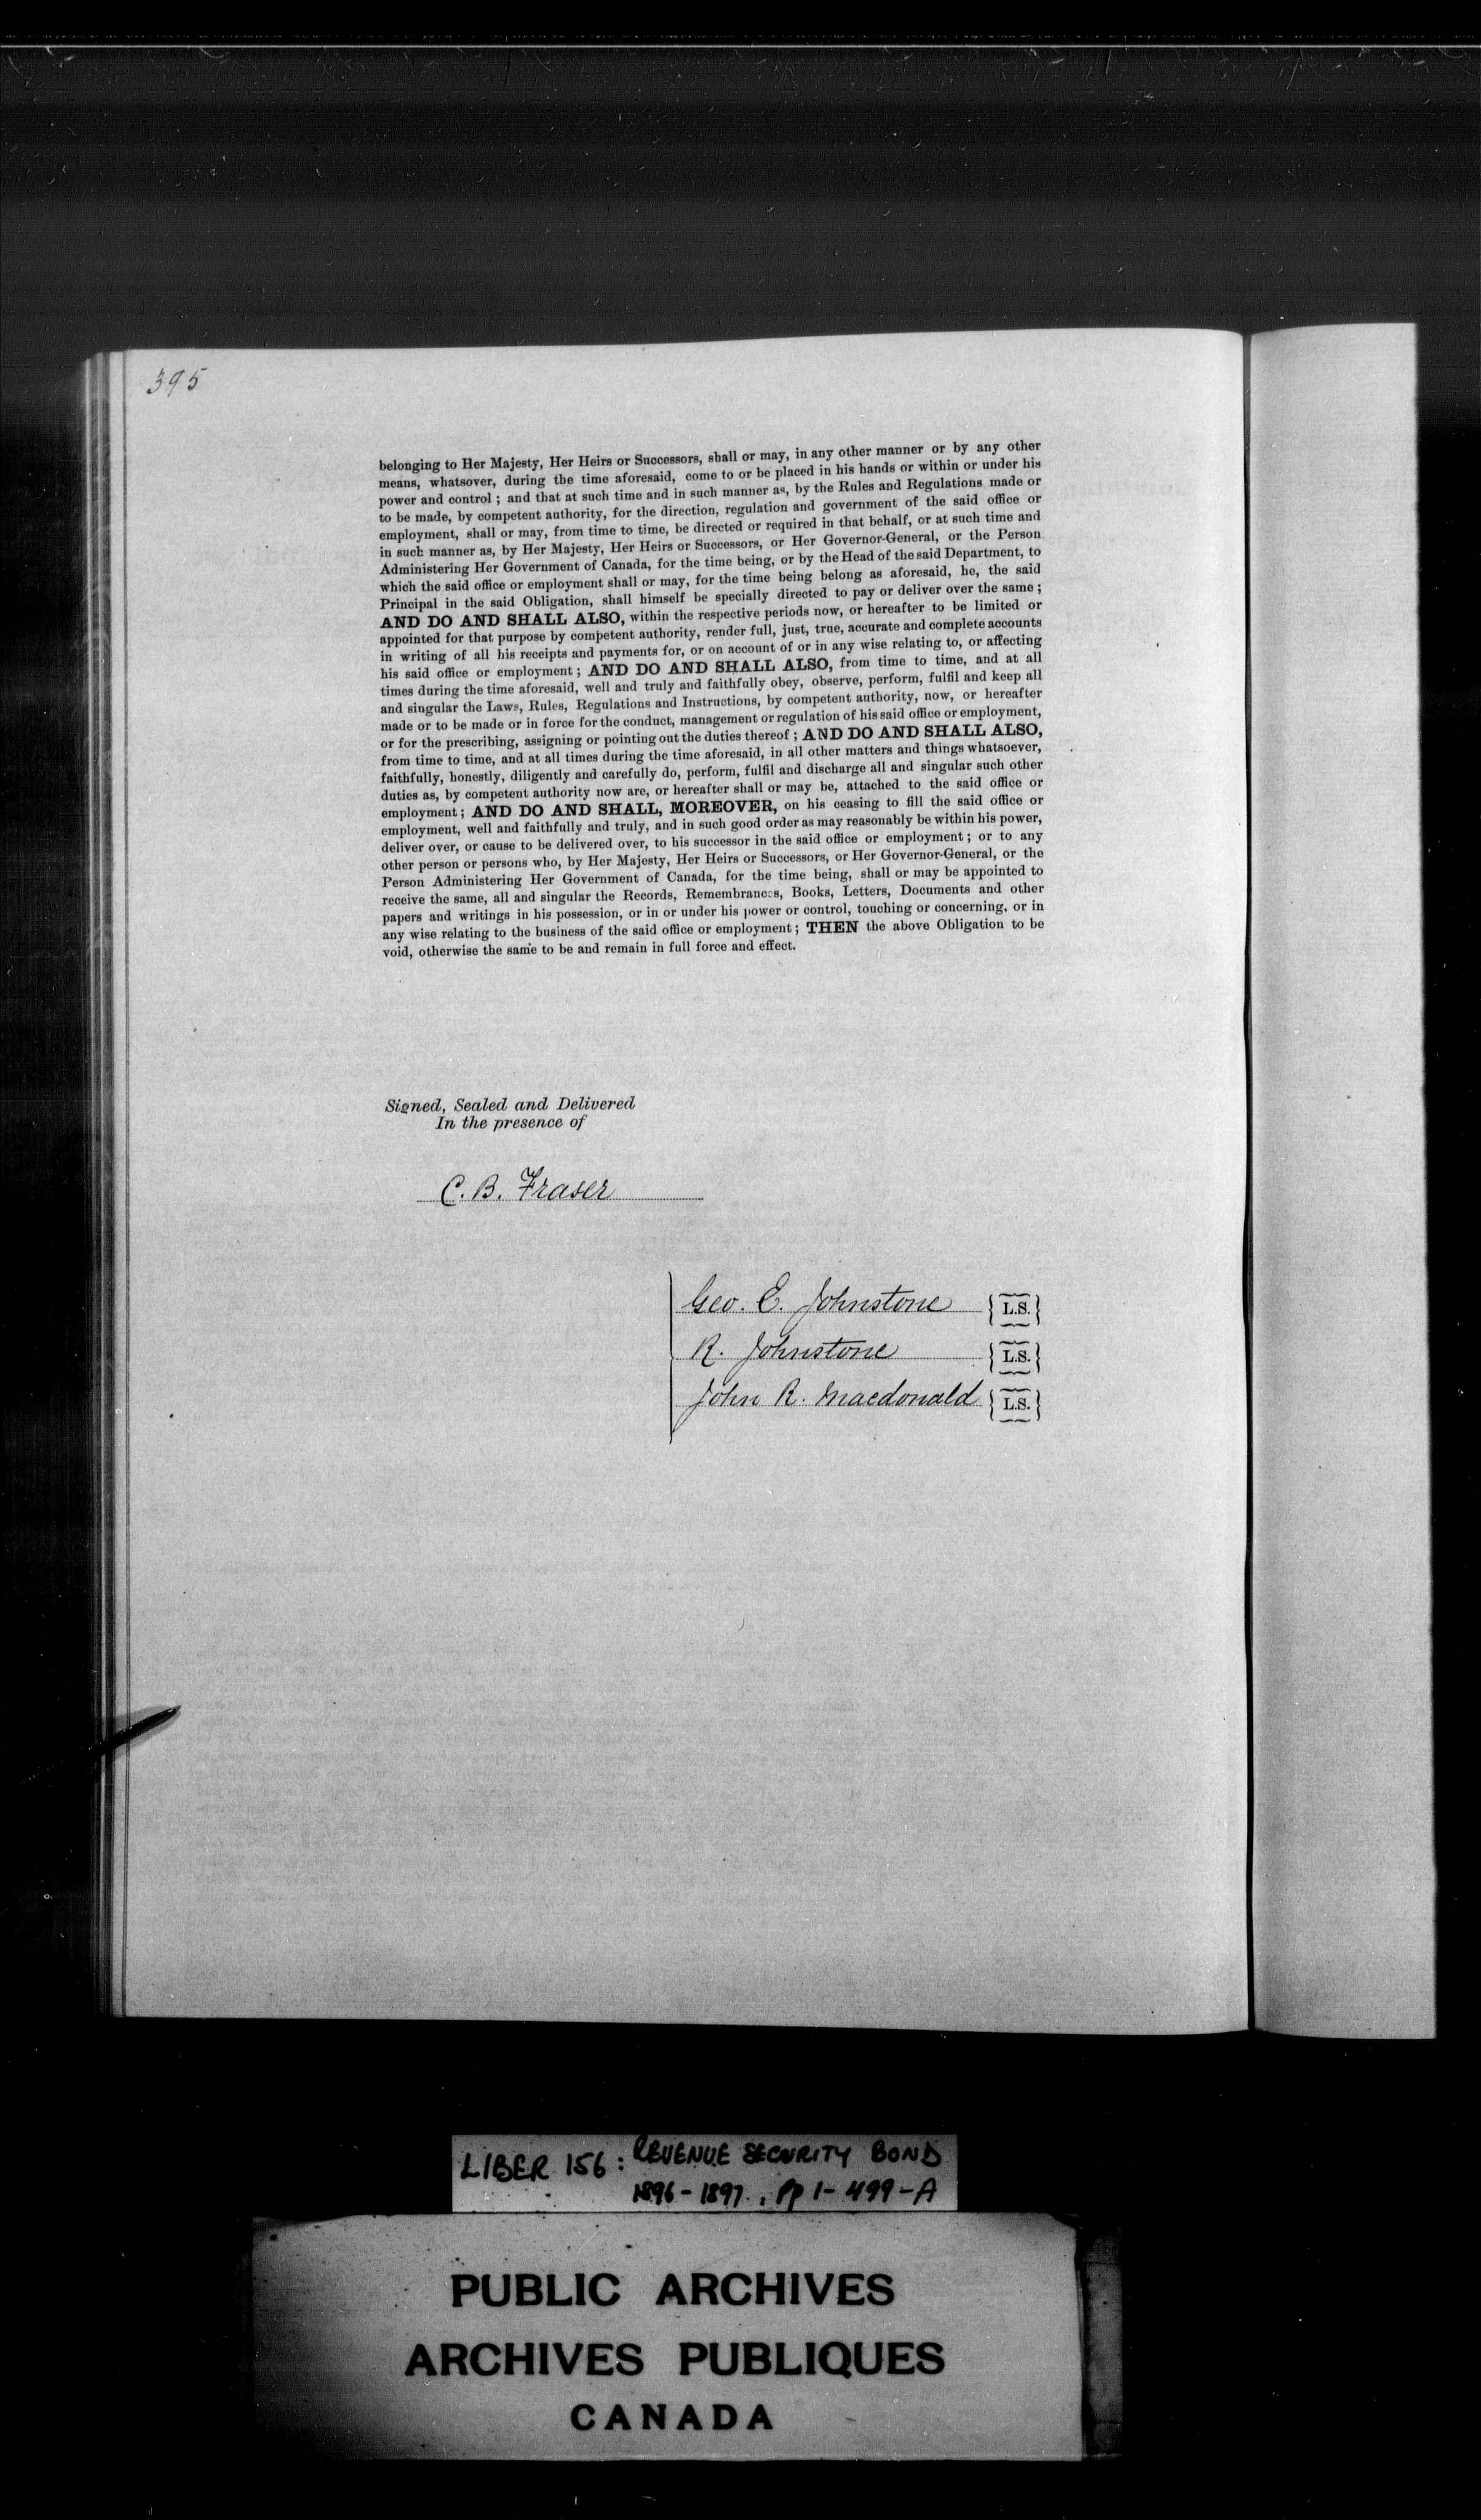 395
belonging to Her Majesty, Her Heirs or Successors, shall or may, in any other manner or by any other
means, whatsover, during the time aforesaid, come to or be placed in his hands or within or under his
power and control ; and that at such time and in such manner as, by the Rules and Regulations made or
to be made, by competent authority, for the direction, regulation and government of the said office or
employment, shall or may, from time to time, be directed or required in that behalf, or at such time and
in such manner as, by Her Majesty, Her Heirs or Successors, or Her Governor-General, or the Person
Administering Her Government of Canada, for the time being, or by the Head of the said Department, to
which the said office or employment shall or may, for the time being belong as aforesaid, he, the said
Principal in the said Obligation, shall himself be specially directed to pay or deliver over the same ;
AND DO AND SHALL ALSO, within the respective periods now, or hereafter to be limited or
appointed for that purpose by competent authority, render full, just, true, accurate and complete accounts
in writing of all his receipts and payments for, or on account of or in any wise relating to, or affecting
his said office or employment ; AND DO AND SHALL ALSO, from time to time, and at all
times during the time aforesaid, well and truly and faithfully obey, observe, perform, fulfil and keep all
and singular the Laws, Rules, Regulations and Instructions, by competent authority, now, or hereafter
made or to be made or in force for the conduct, management or regulation of his said office or employment,
or for the prescribing, assigning or pointing out the duties thereof ; AND DO AND SHALL ALSO,
from time to time, and at all times during the time aforesaid, in all other matters and things whatsoever,
faithfully, honestly, diligently and carefully do, perform, fulfil and discharge all and singular such other
duties as, by competent authority now are, or hereafter shall or may be, attached to the said office or
employment ; AND DO AND SHALL, MOREOVER, on his ceasing to fill the said office or
employment, well and faithfully and truly, and in such good order as may reasonably be within his power,
deliver over, or cause to be delivered over, to his successor in the said office or employment ; or to any
other person or persons who, by Her Majesty, Her Heirs or Successors, or Her Governor-General, or the
Person Administering Her Government of Canada, for the time being, shall or may be appointed to
receive the same, all and singular the Records, Remembrances, Books, Letters, Documents and other
papers and writings in his possession, or in or under his power or control, touching or concerning, or in
any wise relating to the business of the said office or employment ; THEN the above Obligation to be
void, otherwise the same to be and remain in full force and effect.
Signed, Sealed and Delivered
In the presence of
C. B. Fraser
Geo. E. Johnstone {L.S.}
R. Johnstone {L.S.}
John R. Macdonald {L.S.}
LIBER 156: REVENUE SECURITY BOND
1896-1897. Pp 1-499-A
PUBLIC ARCHIVES
ARCHIVES PUBLIQUES
CANADA